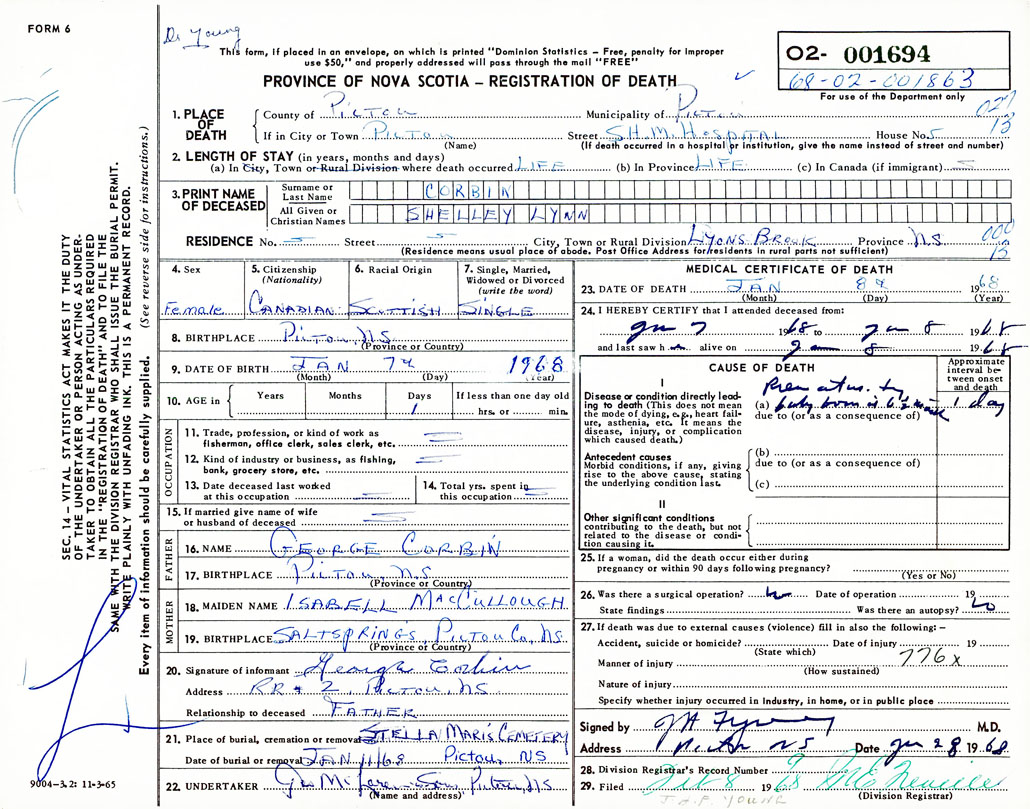 FORM 6
Dr Young
This form, if placed in an envelope, on which is printed "Dominion Statistics – Free, penalty for improper
use $50," and properly addressed will pass through the mail "FREE"
PROVINCE OF NOVA SCOTIA – REGISTRATION OF DEATH
O2- 001694
68-02-001863
For use of the Department only
027
13
1. PLACE OF DEATH
County of Pictou Municipality of Pictou
If in City or Town Pictou Street S.H.M. Hospital House No. 5
(Name) (If death occurred in a hospital or institution, give the name instead of street and number)
2. LENGTH OF STAY (in years, months and days)
(a) In City, Town or Rural Division where death occurred LIFE (b) In Province LIFE (c) In Canada (if immigrant)
3. PRINT NAME OF DECEASED
Surname or Last Name CORBIN
All Given or Christian Names SHELLEY LYNN
RESIDENCE No. Street City, Town or Rural Division Lyons Brook Province N.S.
(Residence means usual place of abode. Post Office Address for residents in rural parts not sufficient)
000
13
4. Sex
Female
5. Citizenship
(Nationality)
Canadian
6. Racial Origin
Scottish
7. Single, Married,
Widowed or Divorced
(write the word)
Single
8. BIRTHPLACE Pictou, N.S.
(Province or Country)
9. DATE OF BIRTH JAN 7th 1968
(Month) (Day) (Year)
10. AGE in
Years Months Days If less than one day old
1 hrs. or min.
OCCUPATION
11. Trade, profession, or kind of work as
fisherman, office clerk, sales clerk, etc.
12. Kind of industry or business, as fishing,
bank, grocery store, etc.
13. Date deceased last worked
at this occupation
14. Total yrs. spent in
this occupation
15. If married give name of wife
or husband of deceased
FATHER
16. NAME George Corbin
17. BIRTHPLACE Pictou, N.S.
(Province or Country)
MOTHER
18. MAIDEN NAME Isabell MacCullough
19. BIRTHPLACE Saltsprings, Pictou Co., N.S.
(Province or Country)
20. Signature of informant George Corbin
Address RR # 2, Pictou, NS
Relationship to deceased Father
21. Place of burial, cremation or removal Stella Maris Cemetery
Date of burial or removal JAN 11/68 Pictou, NS
22. UNDERTAKER Pictou, N.S.
(Name and address)
MEDICAL CERTIFICATE OF DEATH
23. DATE OF DEATH JAN 8th 1968
(Month) (Day) (Year)
24. I HEREBY CERTIFY that I attended deceased from:
Jan 7 1968 to Jan 8 1968
and last saw h alive on Jan 8 1968
CAUSE OF DEATH
Approximate interval between onset and death
I
Disease or condition directly leading to death (This does not mean the mode of dying, e.g., heart failure, asthenia, etc. It means the disease, injury, or complication which caused death.)
(a) baby born at 6½ 1 day
due to (or as a consequence of)
Antecedent causes
Morbid conditions, if any, giving rise to the above cause, stating the underlying condition last.
(b)
due to (or as a consequence of)
(c)
II
Other significant conditions
contributing to the death, but not related to the disease or condition causing it.
25. If a woman, did the death occur either during
pregnancy or within 90 days following pregnancy?
(Yes or No)
26. Was there a surgical operation? No Date of operation 19
State findings Was there an autopsy? No
27. If death was due to external causes (violence) fill in also the following: –
Accident, suicide or homicide? Date of injury 19
(State which)
776x
Manner of injury
(How sustained)
Nature of injury
Specify whether injury occurred in Industry, in home, or in public place
Signed by M.D.
Address Pictou NS Date Jan 28 1968
28. Division Registrar's Record Number 9
29. Filed Feb 8 1968
(Division Registrar)
SEC. 14 – VITAL STATISTICS ACT MAKES IT THE DUTY
OF THE UNDERTAKER OR PERSON ACTING AS UNDER-
TAKER TO OBTAIN ALL THE PARTICULARS REQUIRED
IN THE "REGISTRATION OF DEATH" AND TO FILE THE
SAME WITH THE DIVISION REGISTRAR WHO SHALL ISSUE THE BURIAL PERMIT.
WRITE PLAINLY WITH UNFADING INK. THIS IS A PERMANENT RECORD.
Every item of information should be carefully supplied. (See reverse side for instructions.)
9004–3.2: 11-3-65